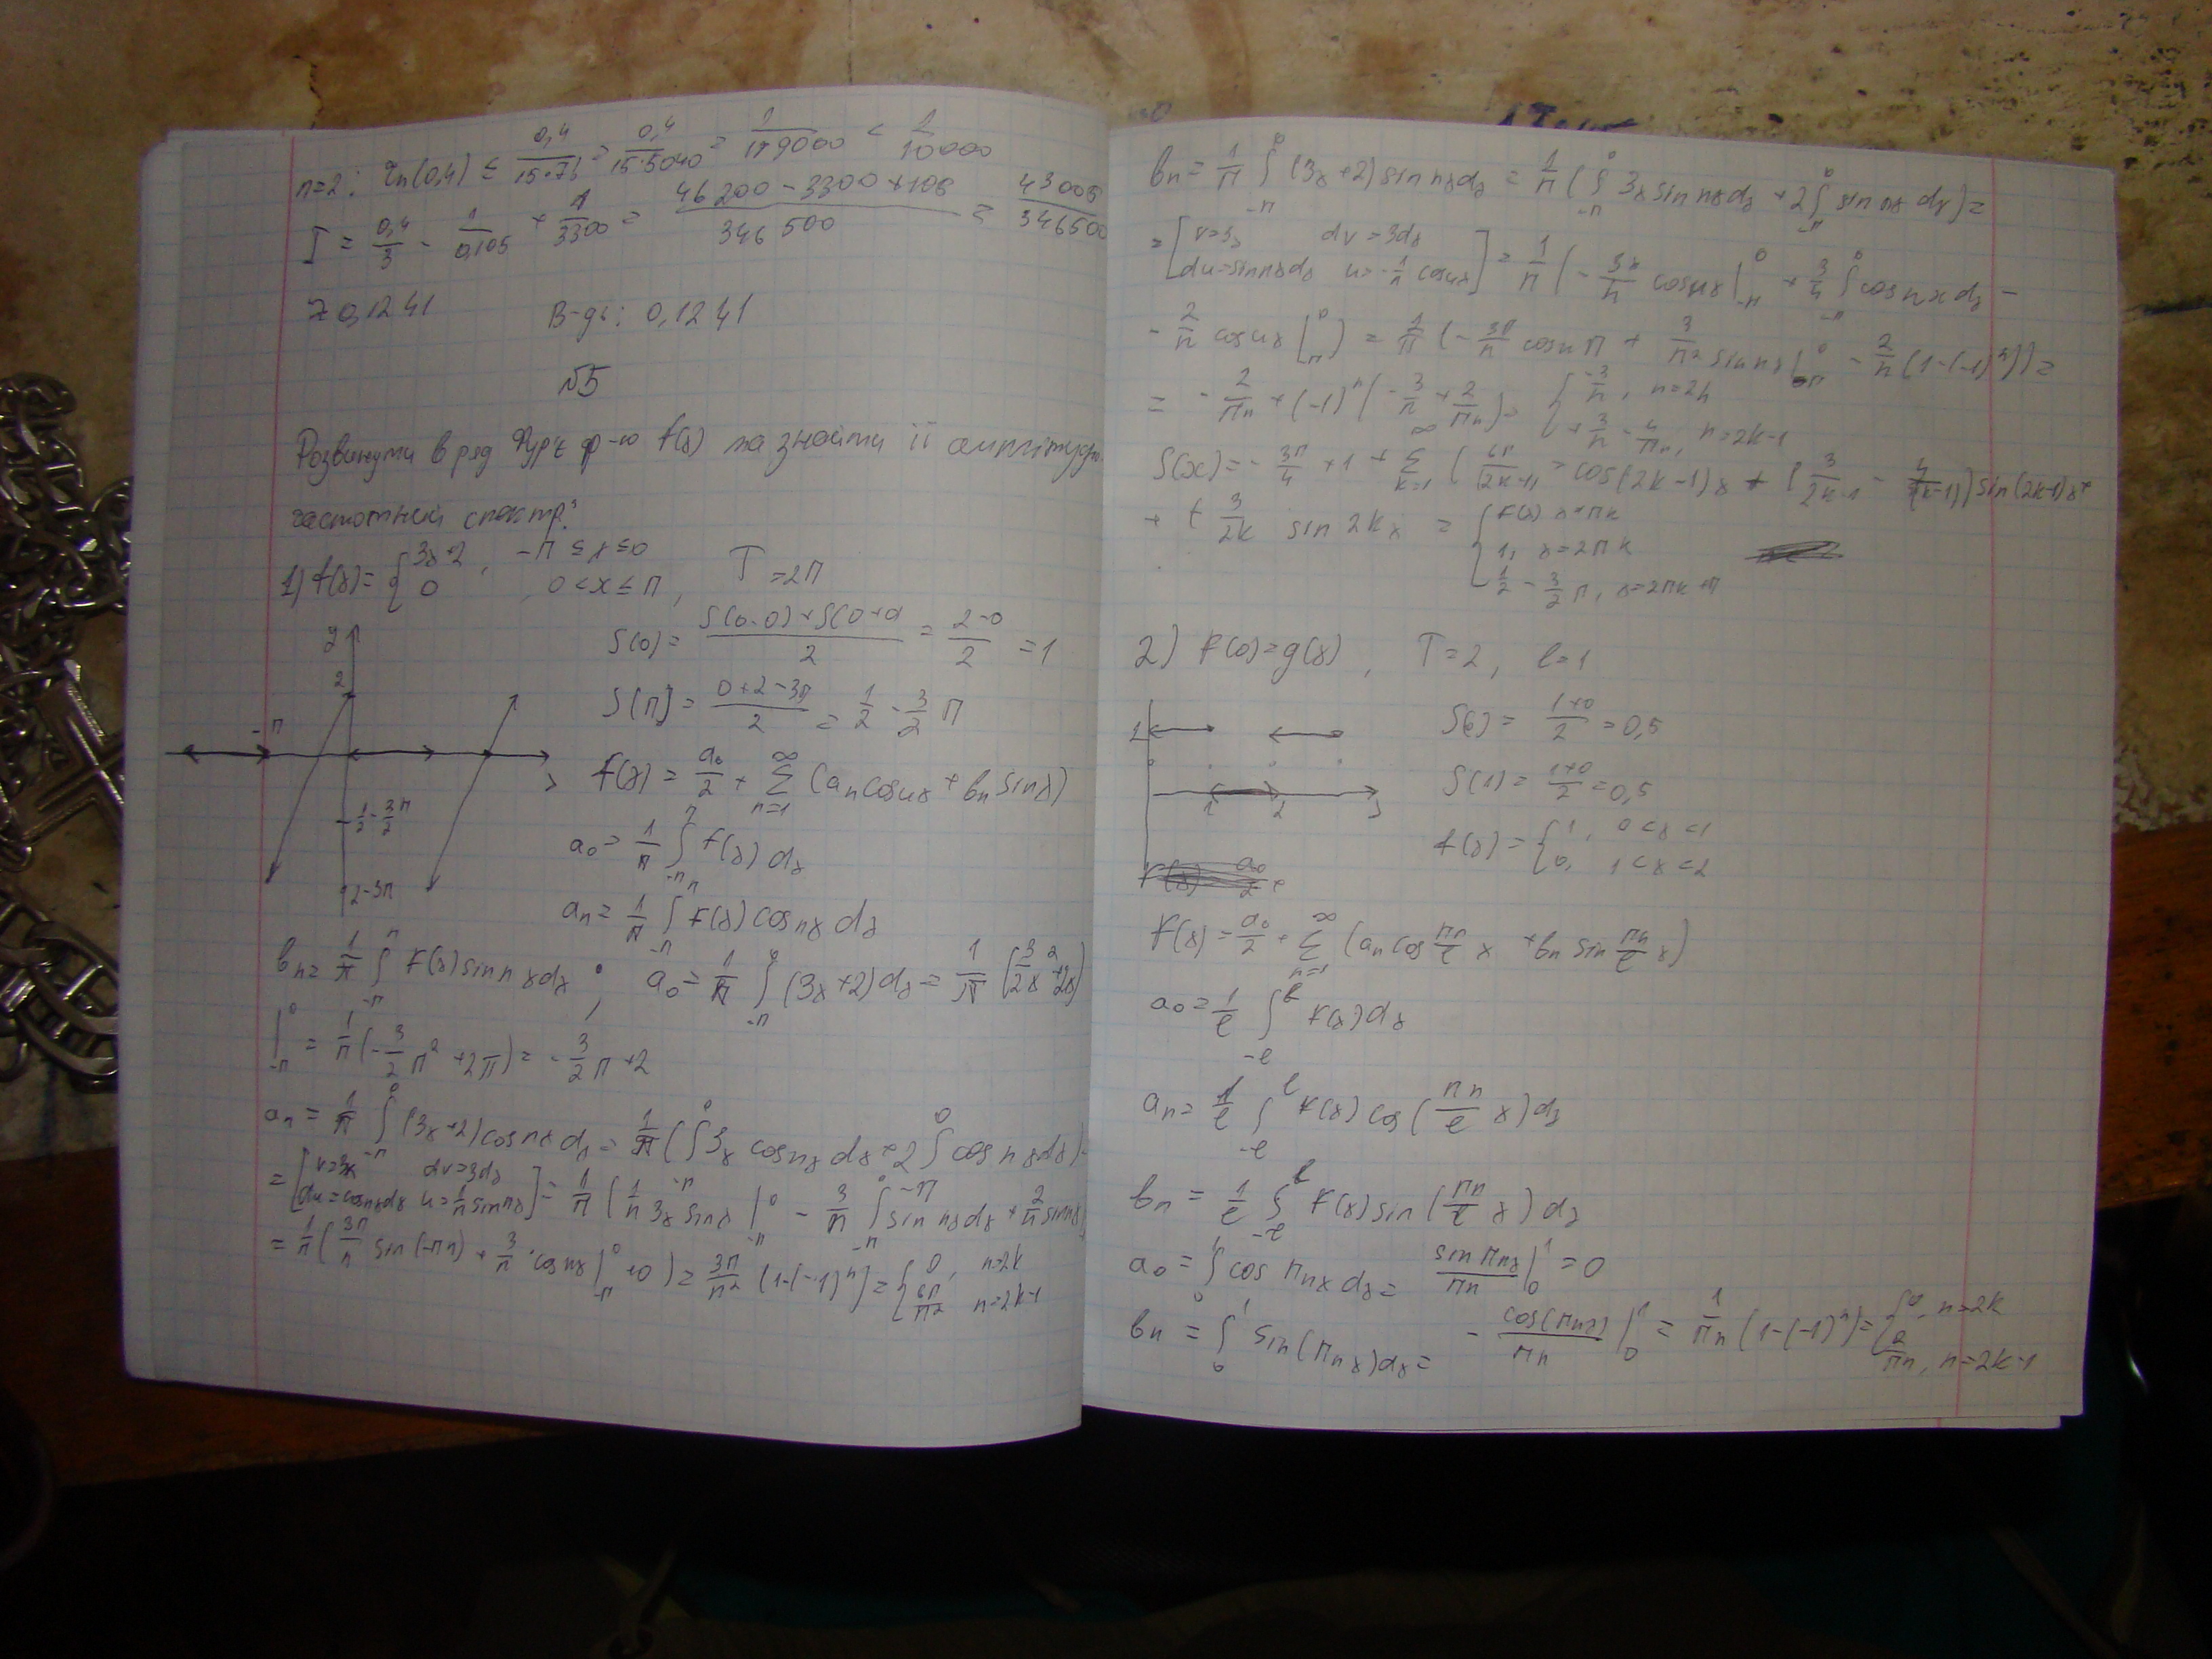 n=2: rn(0,4) ≤ 0,4/(15·7!) = 0,4/(15·5040) = 1/189000 < 1/10000
I = 0,4/3 - 1/0,105 + 1/3300 = (46200-3300+105)/346500 = 43005/346500
≈ 0,1241 В-дь: 0,1241
№5
Розвинути в ряд Фур'є ф-ю f(x) та знайти її амплітудно
частотний спектр:
1) f(x) = { 3x+2, -π ≤ x ≤ 0
0, 0 < x ≤ π, T = 2π
y
2
-π
1/2 - 3/2 π
2-3π
S(0) = (S(0-0)+S(0+0))/2 = (2-0)/2 = 1
S(π) = (0+2-3π)/2 = 1/2 - 3/2 π
f(x) = a0/2 + ∑_{n=1}^{∞} (an cosnx + bn sinx)
a0 = 1/π ∫_{-π}^{π} f(x)dx
an = 1/π ∫_{-π}^{π} f(x)cosnx dx
bn = 1/π ∫_{-π}^{π} f(x)sinn xdx; a0 = 1/π ∫_{-π}^{0} (3x+2)dx = 1/π (3/2x^2+2x)
|_{-π}^{0} = 1/π(-3/2 π^2 + 2π) = -3/2 π + 2
an = 1/π ∫_{-π}^{0} (3x+2)cosnx dx = 1/π (∫_{-π}^{0} 3x cosnx dx + 2∫_{-π}^{0} cosnxdx) =
= [v=3x dv=3dx du=cosnxdx u=1/n sinnx] = 1/π (1/n 3x sinx |_{-π}^{0} - 3/n ∫_{-π}^{0} sin nxdx + 2/n sinnx
= 1/π (3π/n sin(-πn) + 3/n · cosnx |_{-π}^{0} + 0) = 3π/n^2 (1-(-1)^n) = { 0, n=2k
6π/n^2 n=2k-1
bn = 1/π ∫_{-π}^{0} (3x+2)sin nxdx = 1/π (∫_{-π}^{0} 3x sin nxdx + 2∫_{-π}^{0} sin nx dx) =
= [v=3x dv=3dx du=sinnxdx u=-1/n cosnx] = 1/π (-3x/n cosnx |_{-π}^{0} + 3/n ∫_{-π}^{0} cos nx dx -
- 2/n cosnx |_{-π}^{0}) = 1/π (-3π/n cosn π + 3/n^2 sin nx |_{-π}^{0} - 2/n (1-(-1)^n)) =
= -2/πn + (-1)^n (-3/n + 2/πn) = { -3/n, n=2k
+3/n - 4/πn, n=2k-1
S(x) = -3π/4 + 1 + ∑_{k=1}^{∞} (6π/(2k-1)^2 cos(2k-1)x + (3/(2k-1) - 4/(π(2k-1))) sin(2k-1)x +
+ (-3/2k sin 2kx = { f(x) x≠πk
1, x=2πk
1/2 - 3/2 π, x=2πk+π
2) f(x)=g(x), T=2, l=1
1
1 2 3
S(0) = (1+0)/2 = 0,5
S(1) = (1+0)/2 = 0,5
f(x) = { 1, 0<x<1
0, 1<x<2
f(x) = a0/2 + ∑_{n=1}^{∞} (an cos πn/l x + bn sin πn/l x)
a0 = 1/l ∫_{-l}^{l} f(x)dx
an = 1/l ∫_{-l}^{l} f(x) cos(πn/l x)dx
bn = 1/l ∫_{-l}^{l} f(x) sin(πn/l x)dx
a0 = ∫_{0}^{1} cos πnx dx = sin πnx/πn |_{0}^{1} = 0
bn = ∫_{0}^{1} sin(πnx)dx = -cos(πnx)/πn |_{0}^{1} = 1/πn (1-(-1)^n) = { 0, n=2k
2/πn, n=2k-1